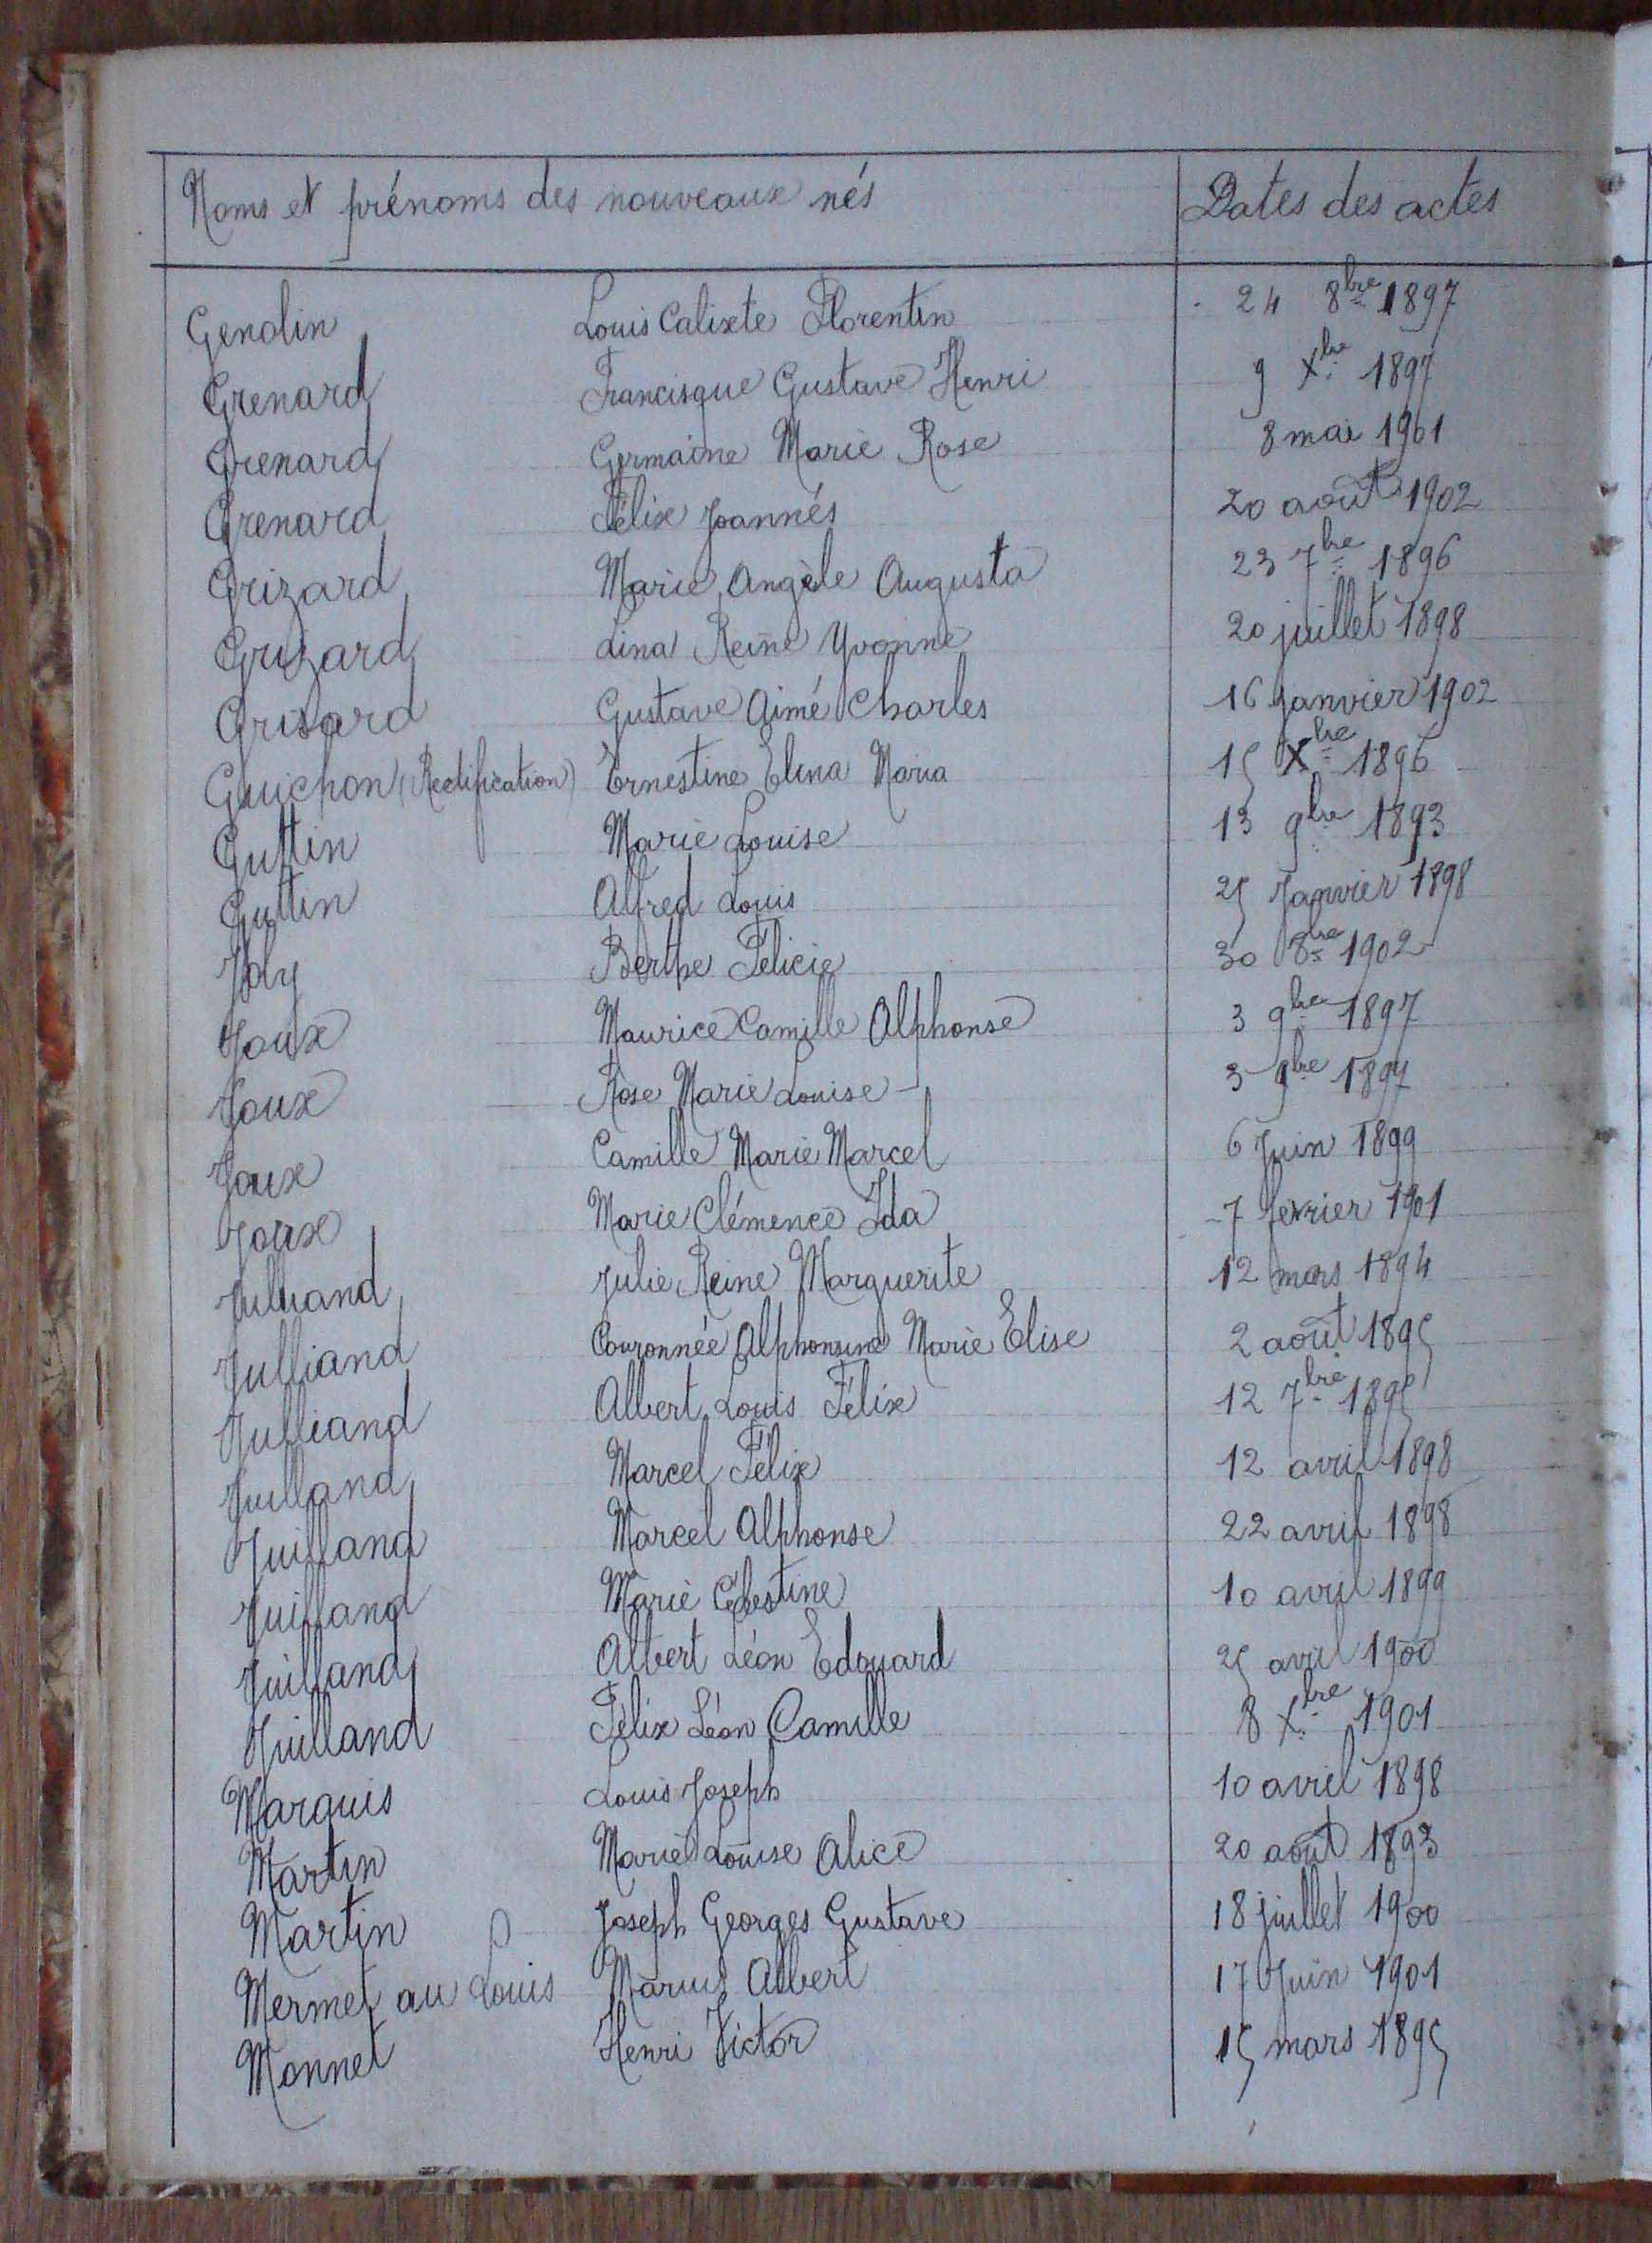 Noms et prénoms des nouveaux nés Dates des actes
Gendin Louis Calixte Florentin 24 8bre 1897
Grenard Francisque Gustave Henri 9 Xbre 1897
Grenard Germaine Marie Rose 8 mai 1901
Grenard Félix Joannés 20 août 1902
Grizard Marie Angèle Augusta 23 7bre 1896
Grizard Lina Reine Yvonne 20 juillet 1898
Grisard Gustave Aimé Charles 16 Janvier 1902
Guichon (Rectification) Ernestine Elina Maria 15 Xbre 1896
Guttin Marie Louise 13 9bre 1893
Guttin Alfred Louis 25 Janvier 1898
Joly Berthe Félicie 30 8bre 1902
Joux Maurice Camille Alphonse 3 9bre 1897
Joux Rose Marie Louise 3 9bre 1897
Joux Camille Marie Marcel 6 Juin 1899
Joux Marie Clémence Ida 7 février 1901
Julliand Julie Reine Marguerite 12 mars 1894
Julliand Couronnée Alphonsine Marie Elise 2 août 1895
Julliand Albert Louis Félix 12 7bre 1895
Juilland Marcel Félix 12 avril 1898
Juilland Marcel Alphonse 22 avril 1898
Juilland Marie Célestine 10 avril 1899
Juilland Albert Léon Edouard 25 avril 1900
Juilland Félix Léon Camille 8 Xbre 1901
Marquis Louis Joseph 10 avril 1898
Martin Marie Louise Alice 20 août 1893
Martin Joseph Georges Gustave 18 juillet 1900
Mermet au Louis Marius Albert 17 Juin 1901
Monnet Henri Victor 15 mars 1895